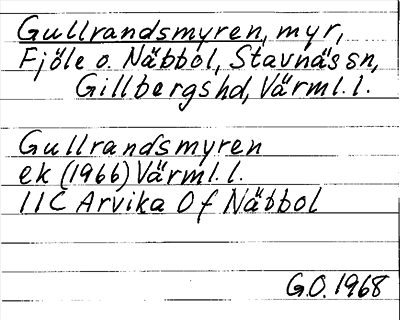 Gullrandsmyren, myr,
Fjöle o. Näbbol, Stavnäs sn,
Gillbergs hd, Värml. l.
Gullrandsmyren
ek (1966) Värml. l.
11C Arvika 0f Näbbol
G.O. 1968